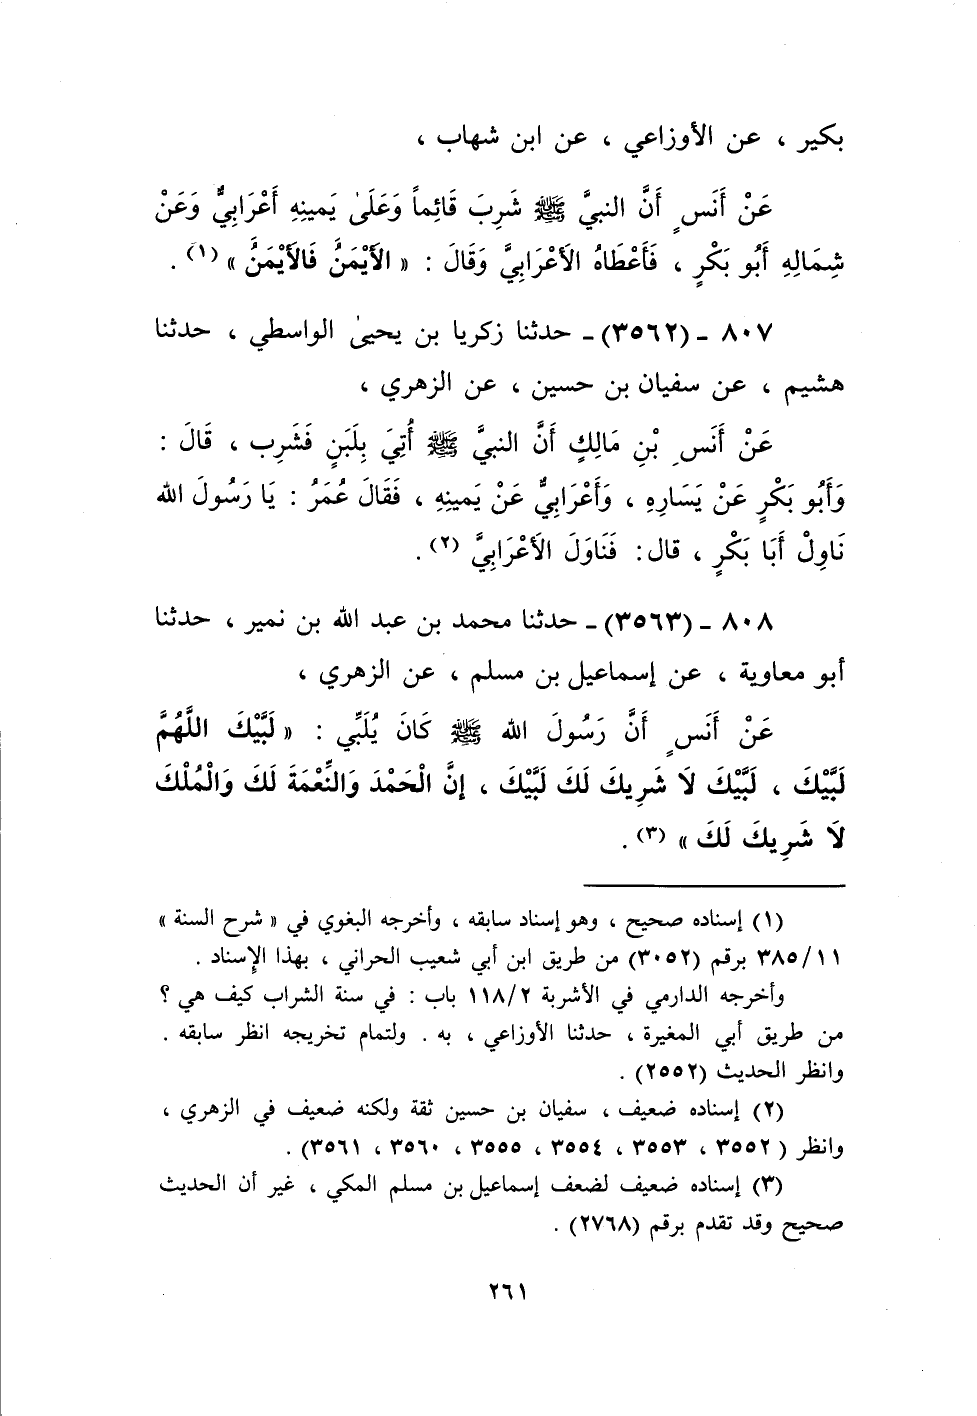 بكير ، عن الأوزاعي ، عن ابن شهاب ،
عَنْ أَنَسٍ أَنَّ النبيَّ ﷺ شَرِبَ قَائِماً وَعَلَىٰ يَمينِهِ أَعْرَابِيٌّ وَعَنْ
شِمَالِهِ أَبُو بَكْرٍ ، فَأَعْطَاهُ الأَعْرَابِيَّ وَقَالَ : « الأَيْمَنُ فَالأَيْمَنُ » (١) .
٨٠٧ ـ (٣٥٦٢) ـ حدثنا زكريا بن يحيىٰ الواسطي ، حدثنا
هشيم ، عن سفيان بن حسين ، عن الزهري ،
عَنْ أَنَسِ بْنِ مَالِكٍ أَنَّ النبيَّ ﷺ أُتِيَ بِلَبَنٍ فَشَرِب ، قَالَ :
وَأَبُو بَكْرٍ عَنْ يَسَارِهِ ، وَأَعْرَابِيٌّ عَنْ يَمينِهِ ، فَقَالَ عُمَرُ : يَا رَسُولَ الله
نَاوِلْ أَبَا بَكْرٍ ، قال : فَنَاوَلَ الأَعْرَابِيَّ (٢) .
٨٠٨ ـ (٣٥٦٣) ـ حدثنا محمد بن عبد الله بن نمير ، حدثنا
أبو معاوية ، عن إسماعيل بن مسلم ، عن الزهري ،
عَنْ أَنَسٍ أَنَّ رَسُولَ الله ﷺ كَانَ يُلَبِّي : « لَبَّيْكَ اللَّهُمَّ
لَبَّيْكَ ، لَبَّيْكَ لَا شَرِيكَ لَكَ لَبَّيْكَ ، إنَّ الْحَمْدَ وَالنِّعْمَةَ لَكَ وَالْمُلْكَ
لَا شَرِيكَ لَكَ » (٣) .
(١) إسناده صحيح ، وهو إسناد سابقه ، وأخرجه البغوي في « شرح السنة »
٣٨٥/١١ برقم (٣٠٥٢) من طريق ابن أبي شعيب الحراني ، بهذا الإسناد .
وأخرجه الدارمي في الأشربة ١١٨/٢ باب : في سنة الشراب كيف هي ؟
من طريق أبي المغيرة ، حدثنا الأوزاعي ، به . ولتمام تخريجه انظر سابقه .
وانظر الحديث (٢٥٥٢) .
(٢) إسناده ضعيف ، سفيان بن حسين ثقة ولكنه ضعيف في الزهري ،
وانظر ( ٣٥٥٢ ، ٣٥٥٣ ، ٣٥٥٤ ، ٣٥٥٥ ، ٣٥٦٠ ، ٣٥٦١) .
(٣) إسناده ضعيف لضعف إسماعيل بن مسلم المكي ، غير أن الحديث
صحيح وقد تقدم برقم (٢٧٦٨) .
٢٦١